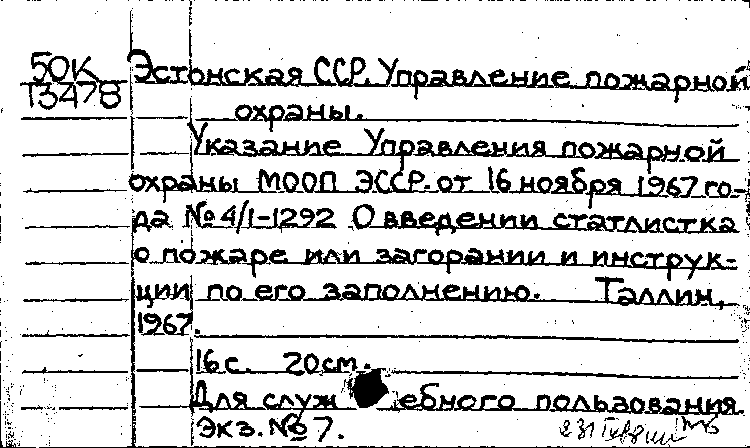 50К
Т3478
Эстонская ССР. Управление пожарной
охраны.
Указание Управления пожарной
охраны МООП ЭССР. от 16 ноября 1967 го-
да № 4/1-1292 О введении статлистка
о пожаре или загорании и инструк-
ции по его заполнению. Таллин,
1967.
16 с. 20 см.
Для служебного пользования.
Экз. № 7.